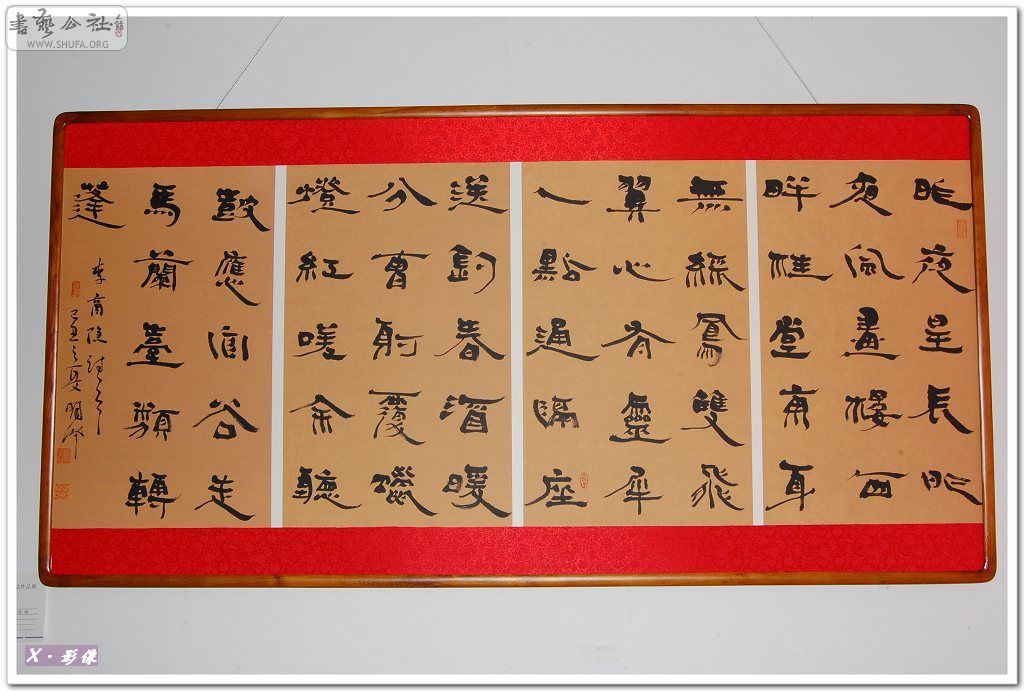 昨夜星辰昨
夜風畫樓西
畔桂堂東身
無綵鳳雙飛
翼心有靈犀
一點通隔座
送鈎春酒暖
分曹射覆蠟
燈紅嗟余聽
鼓應官去走
馬蘭臺類轉
蓬
李商隐詩
己丑之夏
書藝公社
WWW.SHUFA.ORG
X·影像